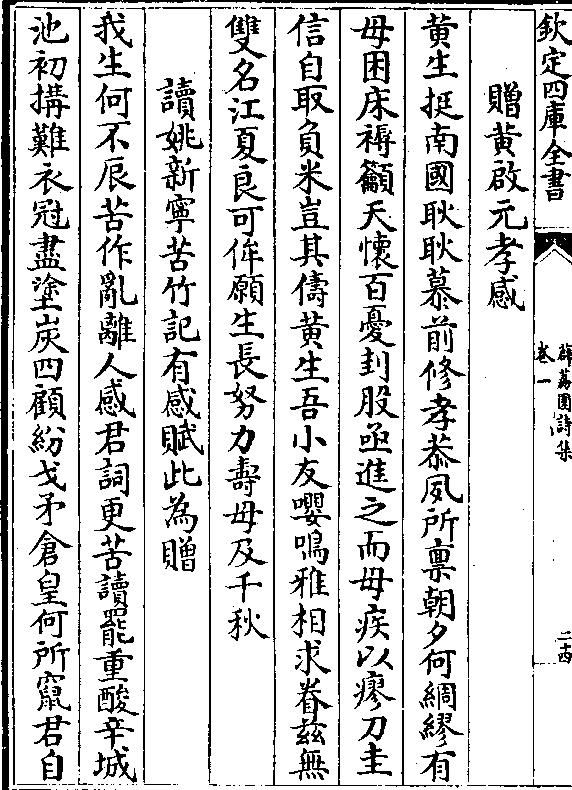 欽定四庫全書
薜荔園詩集
卷一
二十四
贈黄啟元孝感
黄生挺南國耿耿慕前修孝恭夙所禀朝夕何綢繆有
母困床褥籲天懷百憂刲股亟進之而母疾以瘳刀圭
信自取負米豈其儔黄生吾小友嚶鳴雅相求眷兹無
雙名江夏良可侔願生長努力壽母及千秋
讀姚新寧苦竹記有感賦此為贈
我生何不辰苦作亂離人感君詞更苦讀罷重酸辛城
池初搆難衣冠盡塗炭四顧紛戈矛倉皇何所竄君自